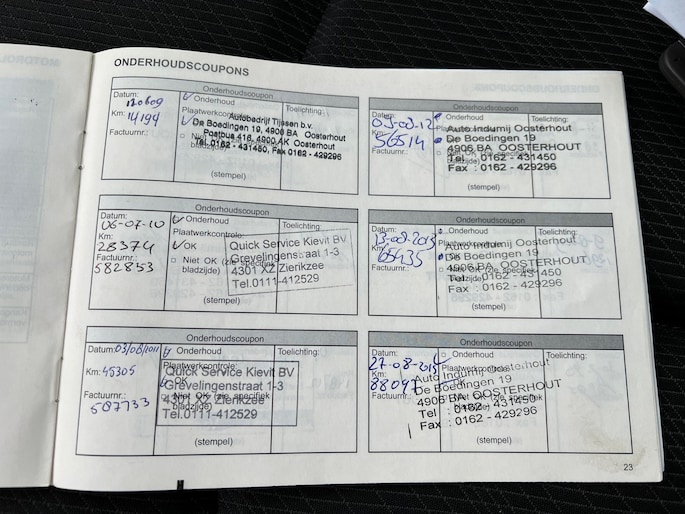 ONDERHOUDSCOUPONS
Onderhoudscoupon
Datum: 120609
Km: 14194
Factuurnr.:
Onderhoud
Plaatwerkcontrole:
Toelichting:
Autobedrijf Tijssen b.v.
De Boedingen 19, 4906 BA Oosterhout
Postbus 416, 4900 AK Oosterhout
Tel. 0162 - 431450, Fax 0162 - 429296
bladzijde)
(stempel)
Onderhoudscoupon
Datum: 06-07-10
Km: 28374
Factuurnr.: 582853
Onderhoud
Plaatwerkcontrole:
OK
Niet OK (zie specifiek
bladzijde)
Toelichting:
Quick Service Kievit BV
Grevelingenstraat 1-3
4301 XZ Zierikzee
Tel.0111-412529
(stempel)
Onderhoudscoupon
Datum: 03/08/2011
Km: 45305
Factuurnr.: 587733
Onderhoud
Plaatwerkcontrole:
OK
Niet OK (zie specifiek
bladzijde)
Toelichting:
Quick Service Kievit BV
Grevelingenstraat 1-3
4301 XZ Zierikzee
Tel.0111-412529
(stempel)
Onderhoudscoupon
Datum:
Km: 56514
Factuurnr.:
Onderhoud
Plaatwerkcontrole:
Toelichting:
Auto Indumij Oosterhout
De Boedingen 19
4906 BA OOSTERHOUT
Tel : 0162 - 431450
Fax : 0162 - 429296
(stempel)
Onderhoudscoupon
Datum: 13-08-2013
Km: 65435
Factuurnr.:
Onderhoud
Plaatwerkcontrole:
Toelichting:
Auto Indumij Oosterhout
De Boedingen 19
4906 BA OOSTERHOUT
Tel : 0162 - 431450
Fax : 0162 - 429296
(stempel)
Onderhoudscoupon
Datum: 27-08-2015
Km: 88097
Factuurnr.:
Onderhoud
Plaatwerkcontrole:
Toelichting:
Auto Indumij Oosterhout
De Boedingen 19
4906 BA OOSTERHOUT
Tel : 0162 - 431450
Fax : 0162 - 429296
(stempel)
23